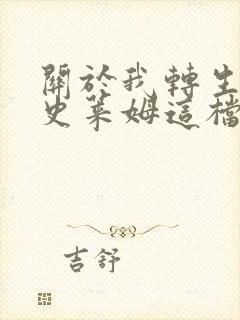 關於我轉生
史萊姆這檔
吉舒